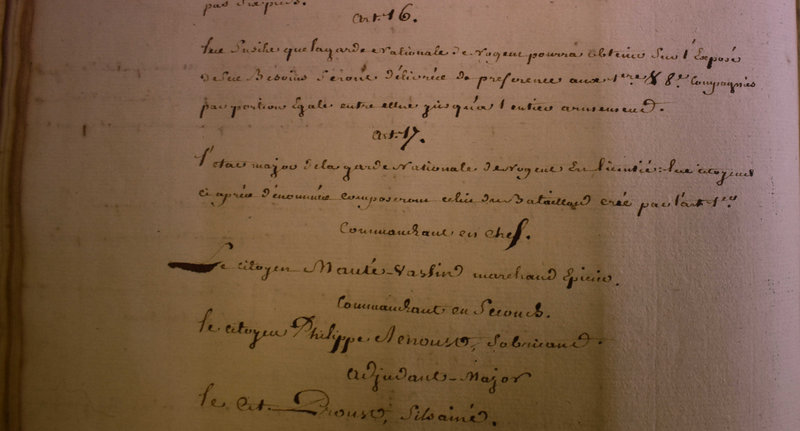 Art. 16.
Les fusils que la garde Nationale de Nogent pourra obtenir sur l'Exposé
de ses Besoins seront délivrés de preference aux 1ere & 8e Compagnies
par portion Egale entre elles jusqu'a l'entier armement.
Art. 17.
l'état major de la garde Nationale de Nogent Est licentié: les citoyens
ci après dénommés composeront celui du Bataillond créé par l'art 1er
Commandant en chef.
Le citoyen Mauté-Vassin marchand Epicier.
Commandant en Second.
le citoyen Philippe fabricant.
Adjudant-Major
le Cit. Proust,